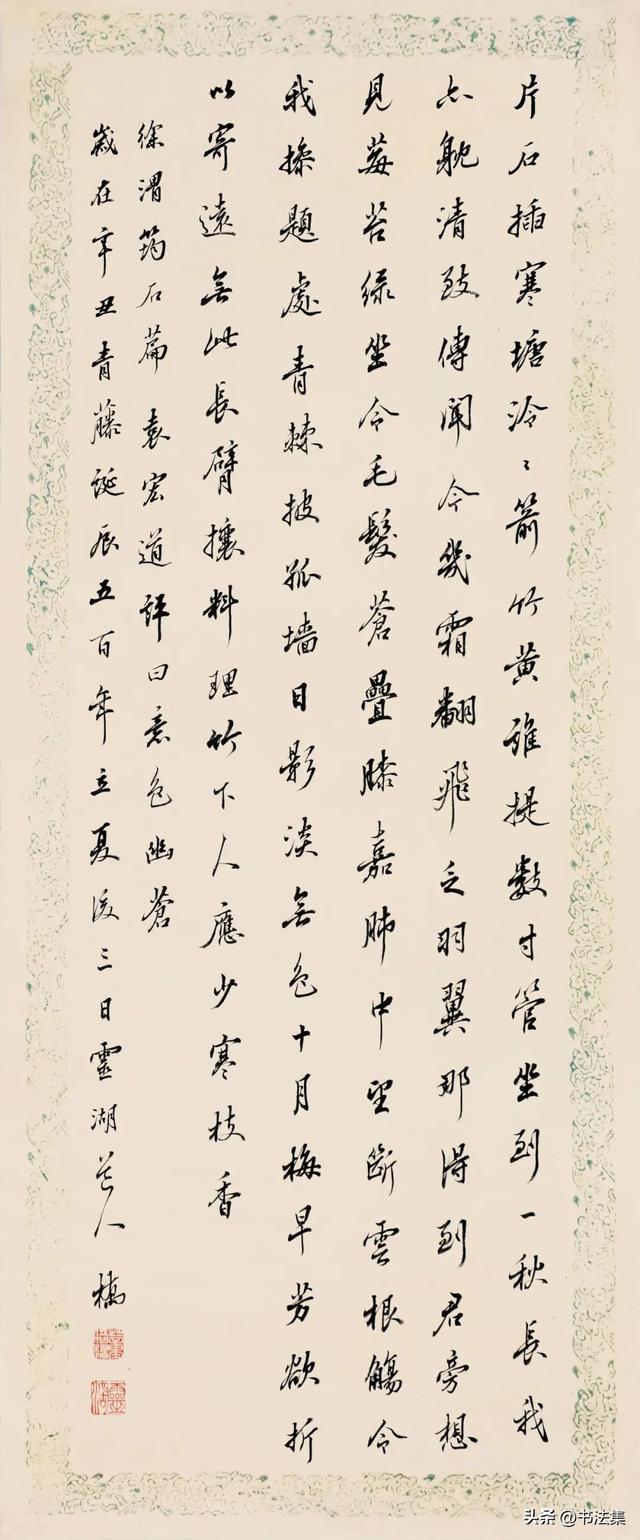 片石插寒塘泠〻箭竹黄誰提數寸管坐到一秋長我
亦躭清致傳聞今幾霜翻飛乏羽翼那得到君旁想
見莓苔綠坐令毛髮蒼疊膝嘉肺中望斷雲根觴令
我擽題處青棘披孤墻日影淡無色十月梅早芳欲折
以寄遠無此長臂攘料理竹下人應少寒枝香
徐渭筠石篇 袁宏道評曰意色幽蒼
歲在辛丑青藤誕辰五百年立夏後三日靈湖芒人橋
头条@书法集